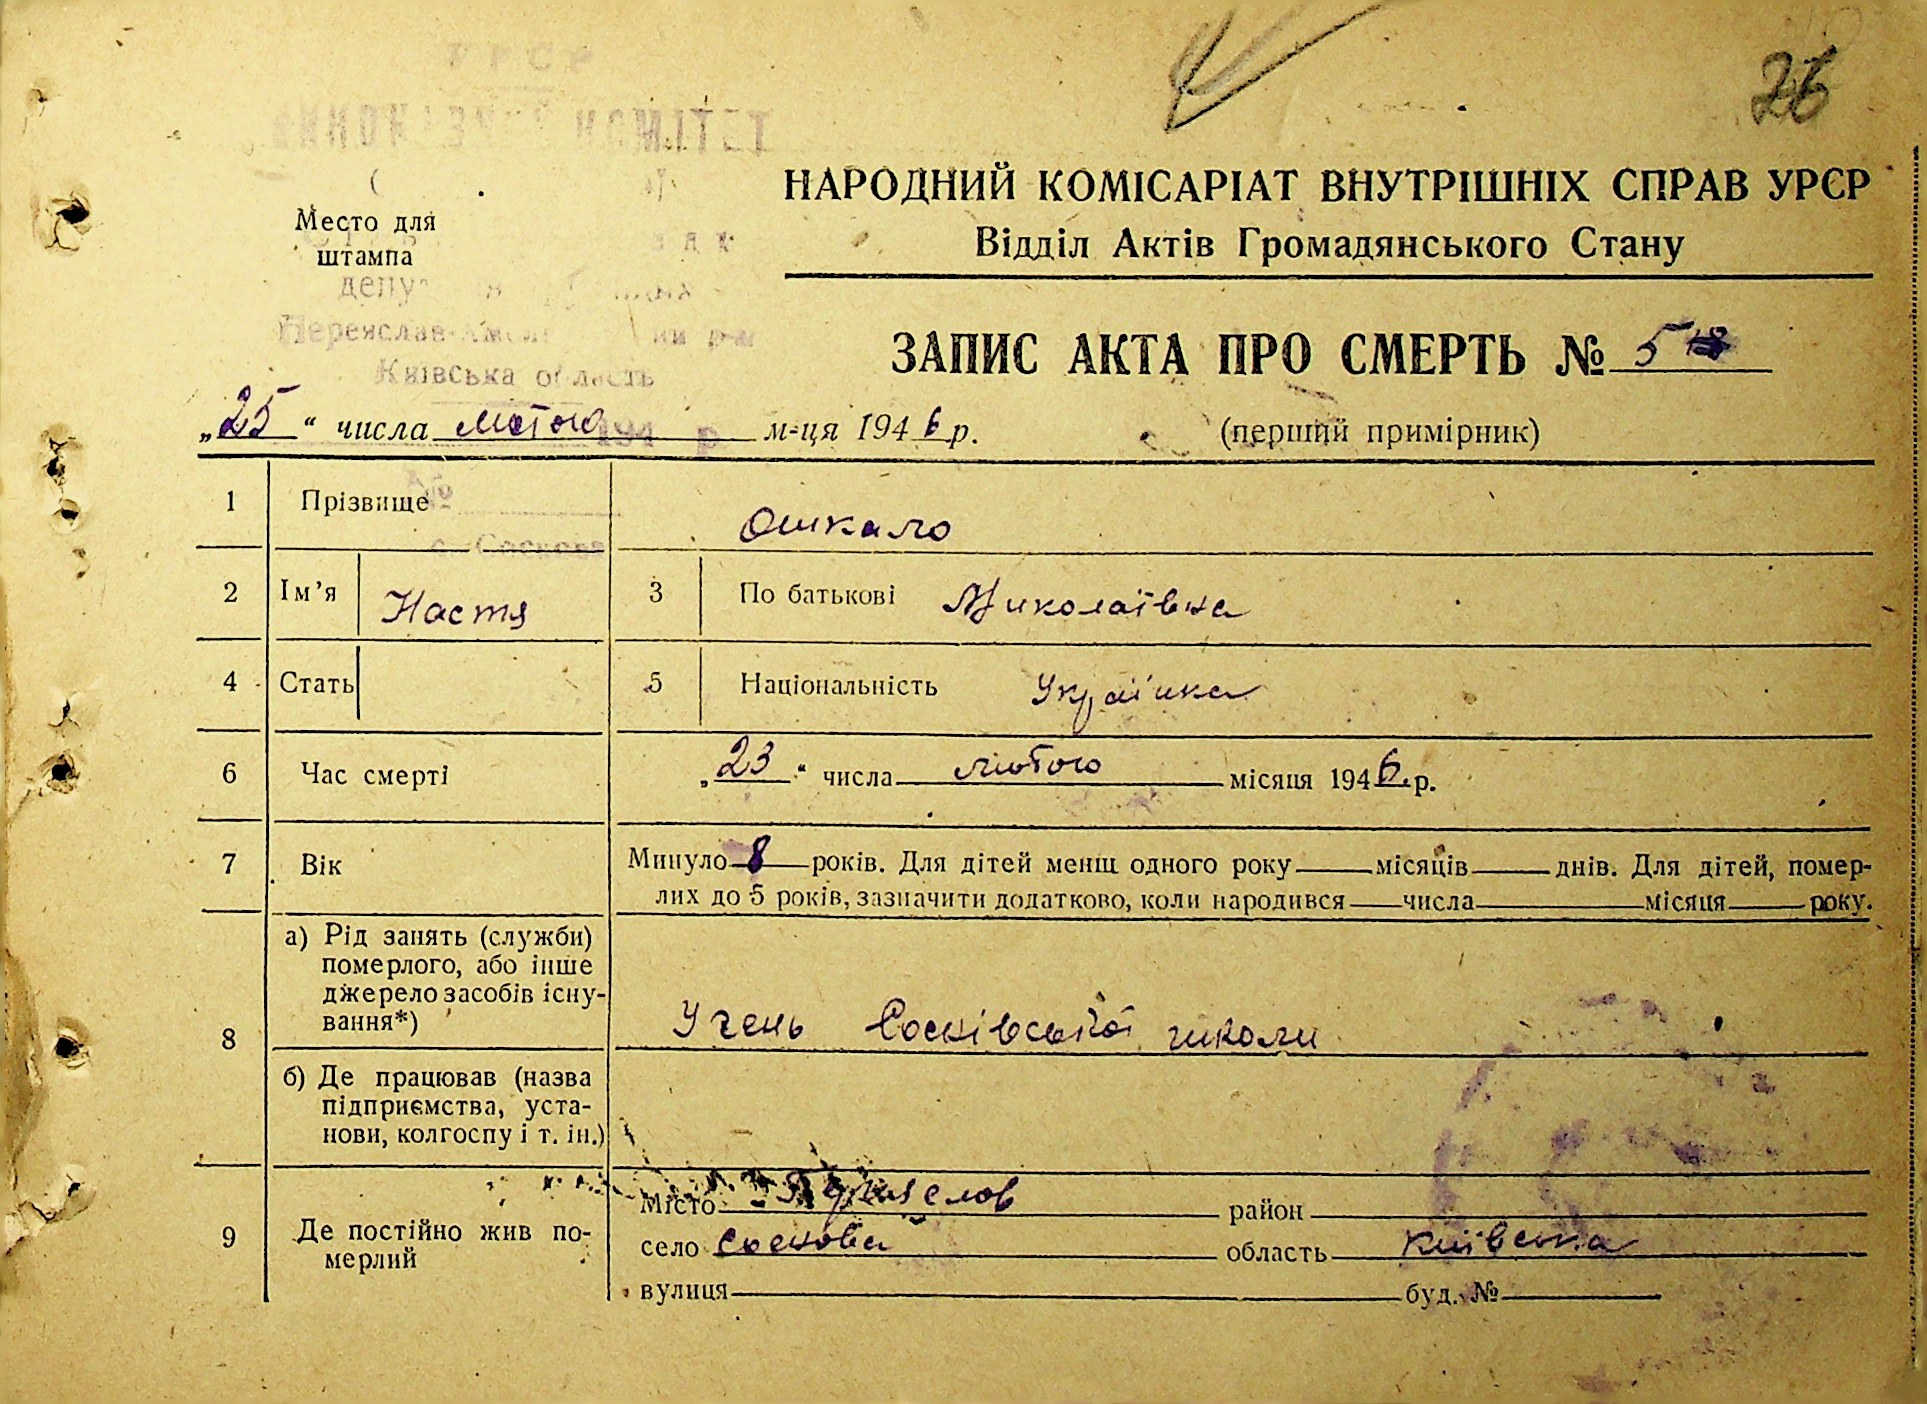 26
НАРОДНИЙ КОМІСАРІАТ ВНУТРІШНІХ СПРАВ УРСР
Відділ Актів Громадянського Стану
Место для
штампа
Київська область
ЗАПИС АКТА ПРО СМЕРТЬ № 5
„25“ числа лютого м-ця 1946 р.
(перший примірник)
1 Прізвище Ошкало
2 Ім’я Настя 3 По батькові Миколаївна
4 Стать 5 Національність Українка
6 Час смерті „23“ числа лютого місяця 1946 р.
7 Вік Минуло 8 років. Для дітей менш одного року місяців днів. Для дітей, помер-
лих до 5 років, зазначити додатково, коли народився числа місяця року.
8 а) Рід занять (служби)
померлого, або інше
джерело засобів існу-
вання*)
Учень Сосківської школи
б) Де працював (назва
підприємства, уста-
нови, колгоспу і т. ін.)
9 Де постійно жив по-
мерлий
Місто район
село Соскова область Київська
вулиця буд. №